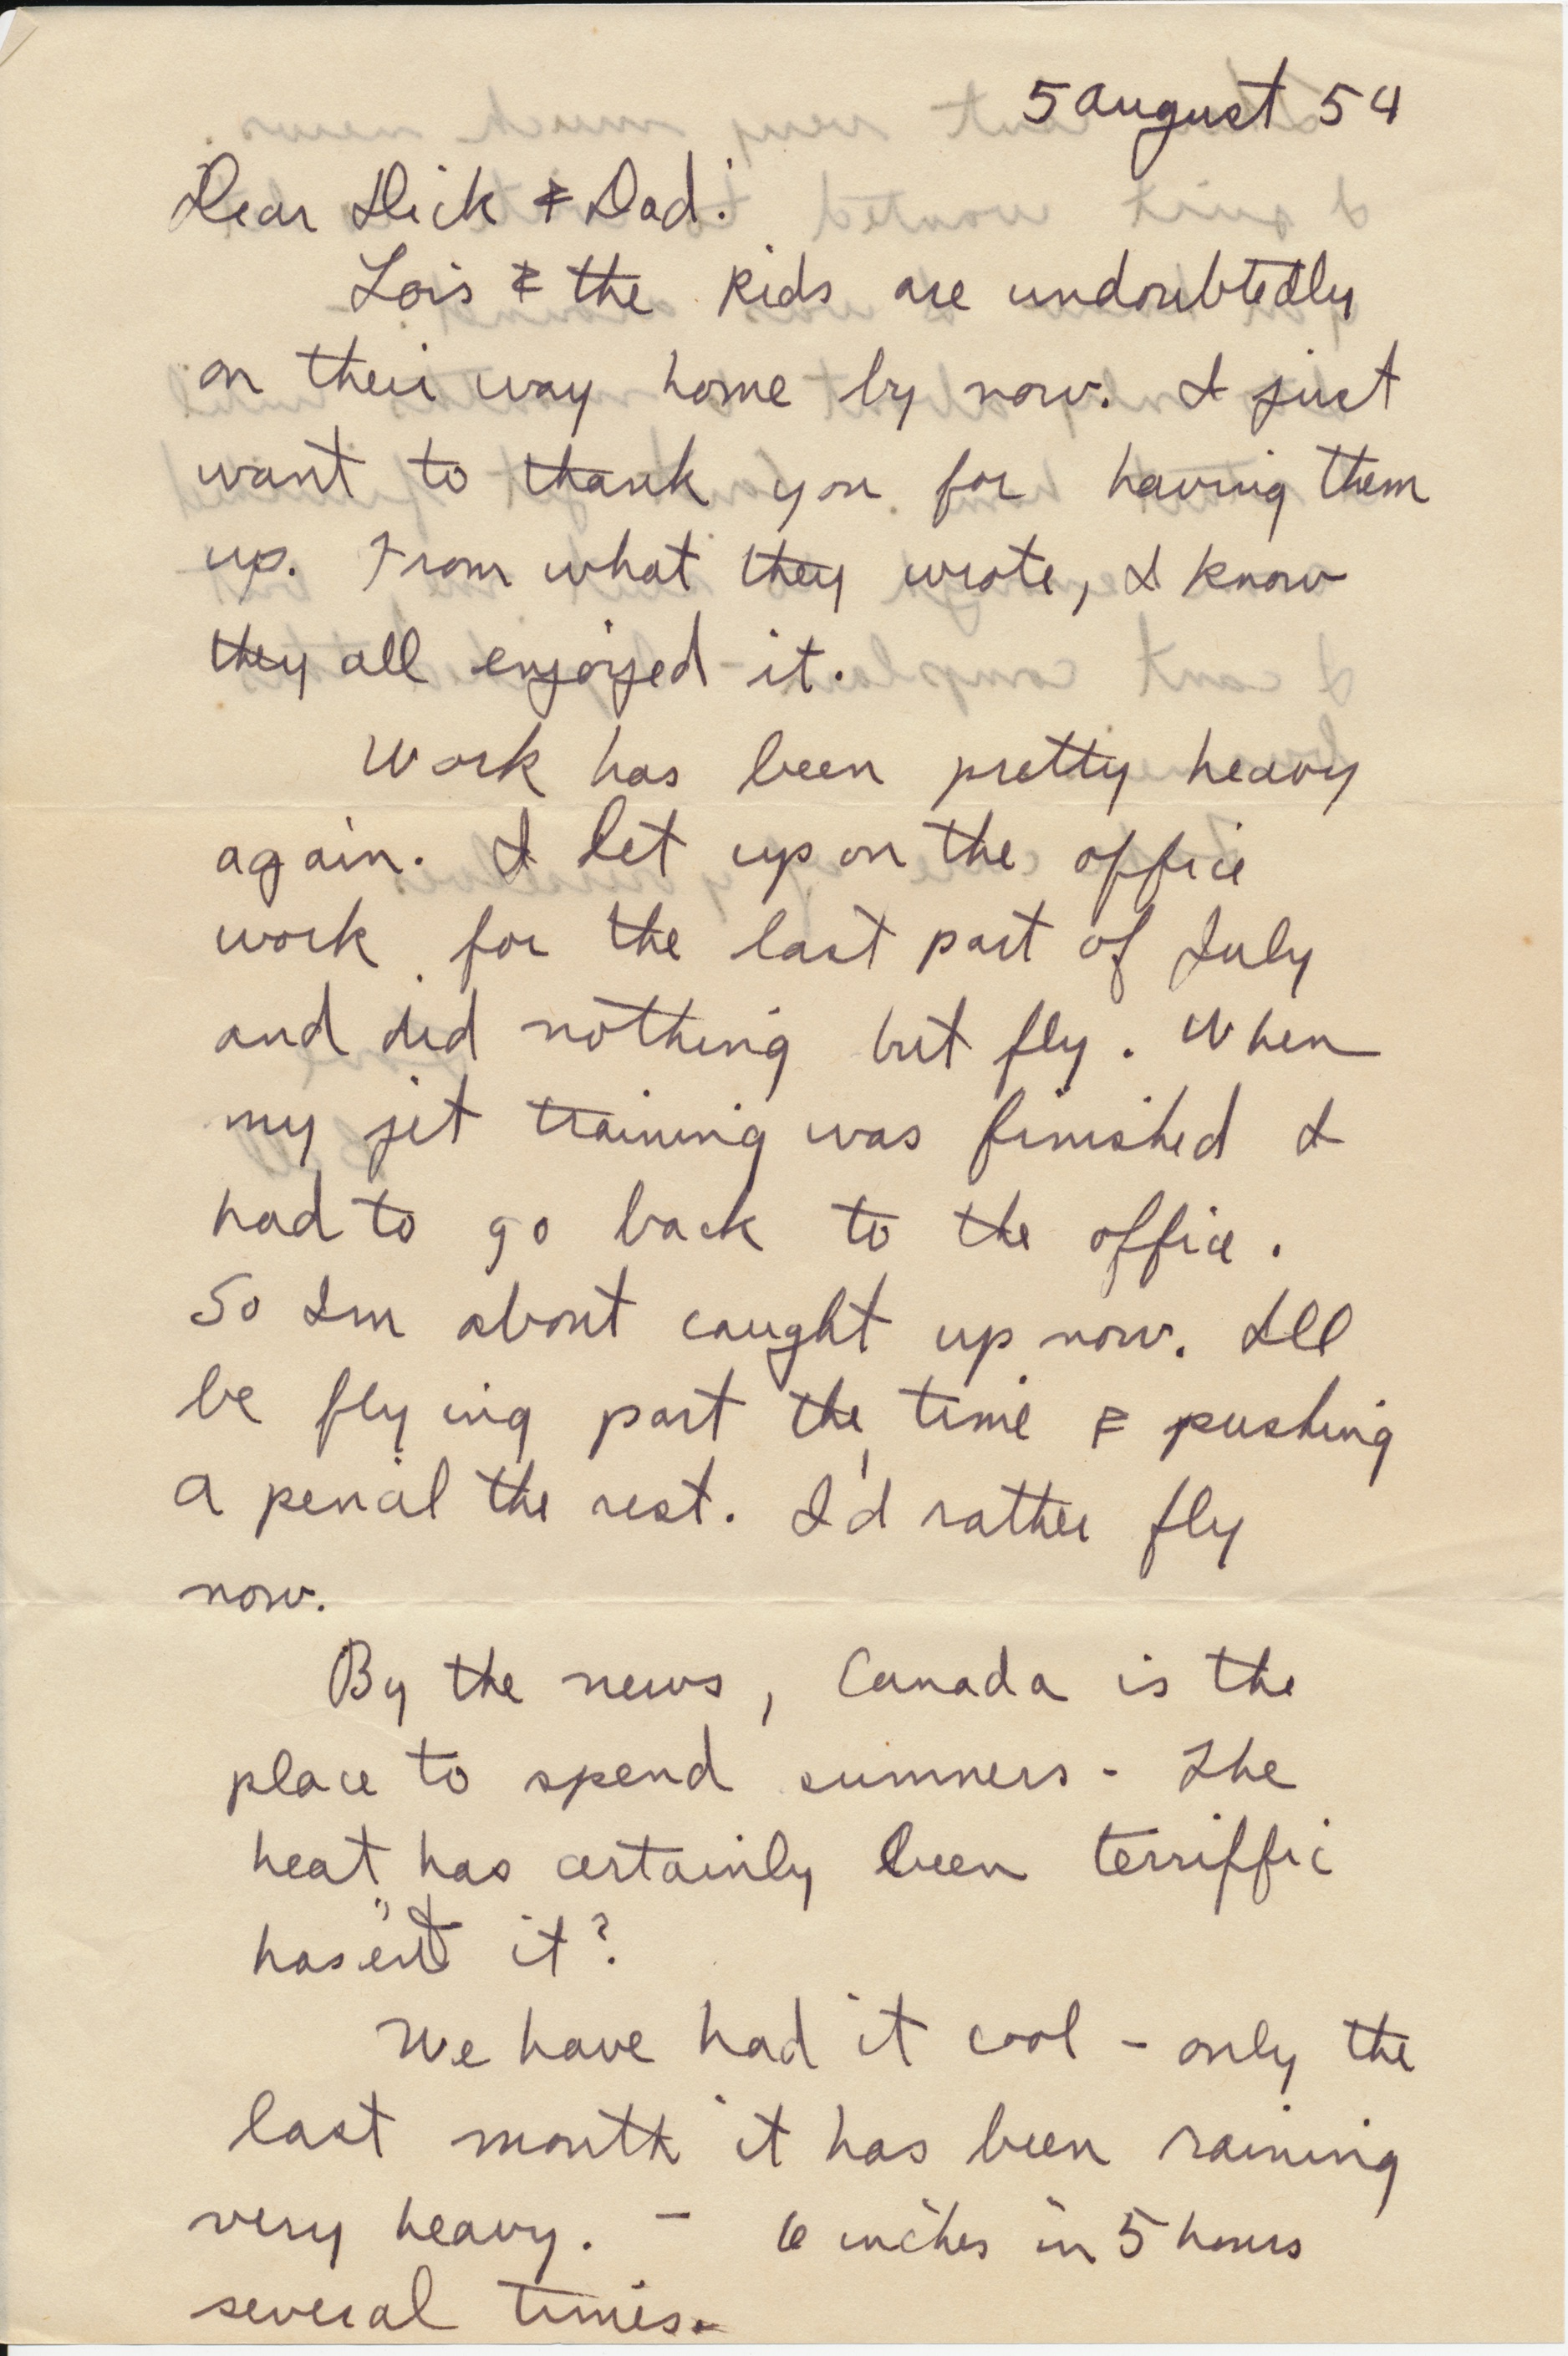 5 August 54
Dear Dick & Dad:
Lois & the kids are undoubtedly
on their way home by now. I just
want to thank you for having them
up. From what they wrote, I know
they all enjoyed it.
Work has been pretty heavy
again. I let up on the office
work for the last part of July
and did nothing but fly. When
my jet training was finished I
had to go back to the office.
So Im about caught up now. Ill
be flying part the time & pushing
a pencil the rest. I'd rather fly
now.
By the news, Canada is the
place to spend summers - The
heat has certainly been terriffic
hasen't it?
We have had it cool - only the
last month it has been raining
very heavy. - 6 inches in 5 hours
several times.